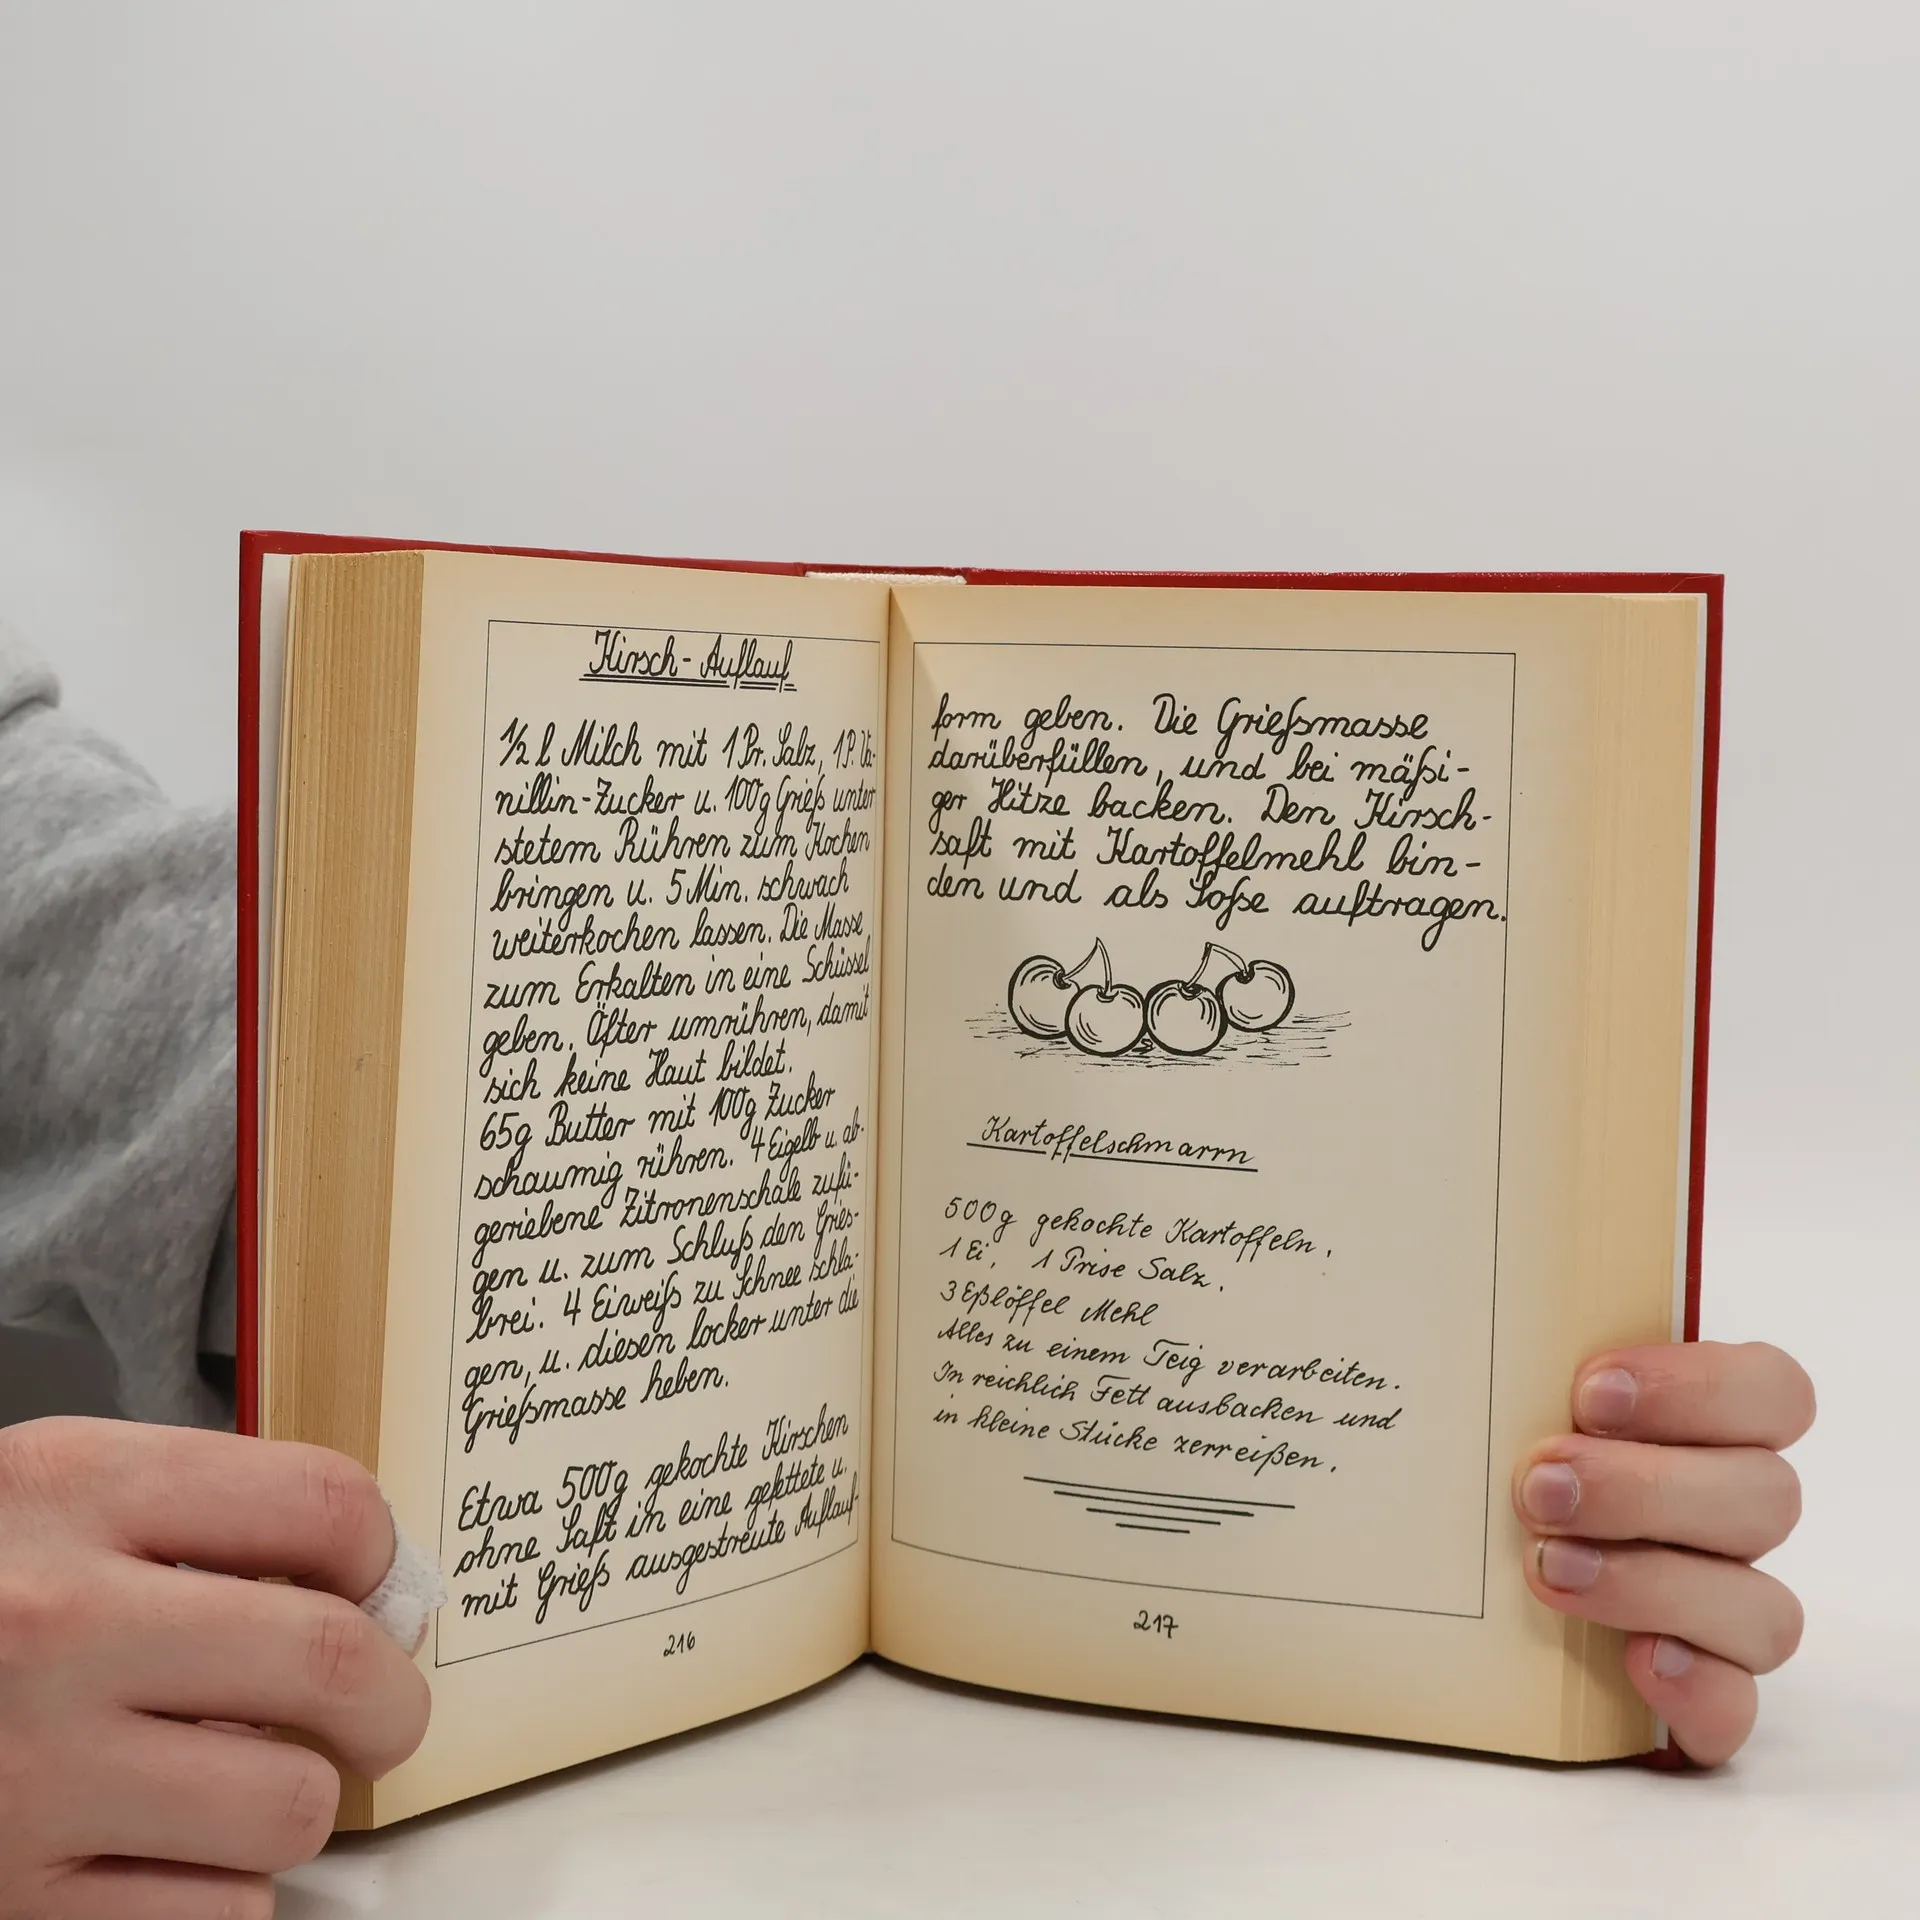 Kirsch-Auflauf
½ l Milch mit 1 Pr. Salz, 1 P. Va-
nillin-Zucker u. 100g Grieß unter
stetem Rühren zum Kochen
bringen u. 5 Min. schwach
weiterkochen lassen. Die Masse
zum Erkalten in eine Schüssel
geben. Öfter umrühren, damit
sich keine Haut bildet.
65g Butter mit 100g Zucker
schaumig rühren. 4 Eigelb u. ab-
geriebene Zitronenschale zufü-
gen u. zum Schluß den Gries-
brei. 4 Eiweiß zu Schnee schla-
gen, u. diesen locker unter die
Grießmasse heben.
Etwa 500g gekochte Kirschen
ohne Saft in eine gefettete u.
mit Grieß ausgestreute Auflauf-
216
form geben. Die Grießmasse
darüberfüllen, und bei mäßi-
ger Hitze backen. Den Kirsch-
saft mit Kartoffelmehl bin-
den und als Soße auftragen.
Kartoffelschmarrn
500g gekochte Kartoffeln,
1 Ei, 1 Prise Salz,
3 Eßlöffel Mehl
Alles zu einem Teig verarbeiten.
In reichlich Fett ausbacken und
in kleine Stücke zerreißen.
217